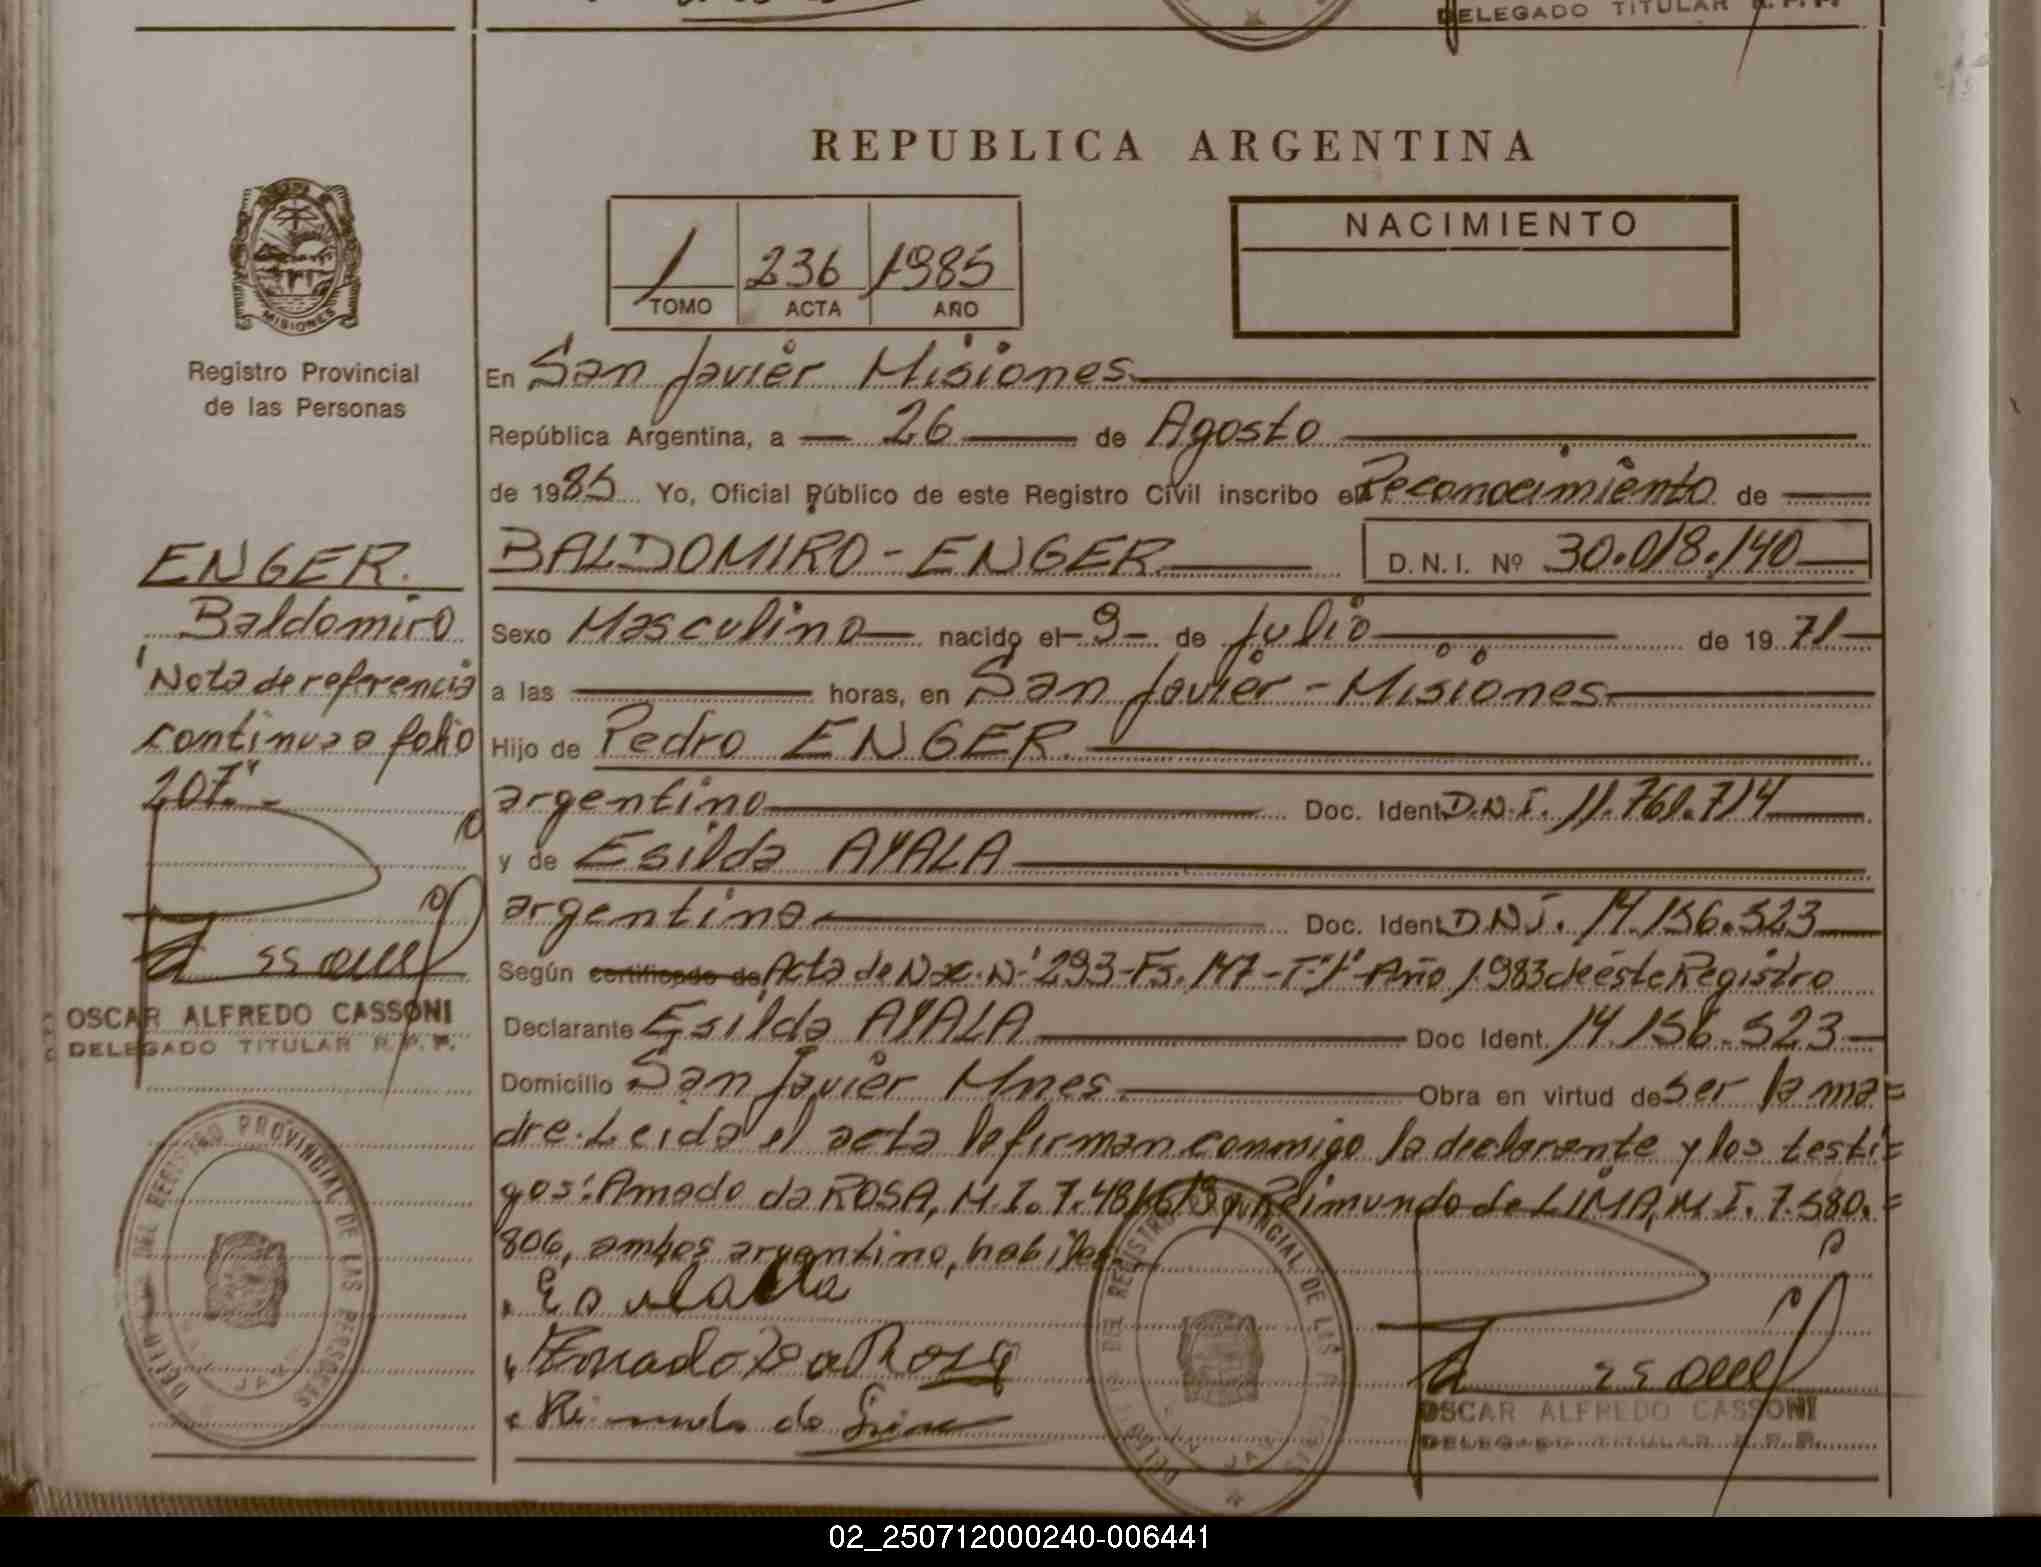 DELEGADO TITULAR R.P.P.
REPUBLICA ARGENTINA
MISIONES
Registro Provincial
de las Personas
1 236 1985
TOMO ACTA AÑO
NACIMIENTO
En San Javier Misiones
República Argentina, a 26 de Agosto
de 1985 Yo, Oficial Público de este Registro Civil inscribo el Reconocimiento de
BALDOMIRO - ENGER D.N.I. Nº 30.018.140
Sexo Masculino nacido el - 9 - de Julio de 19 71
a las horas, en San Javier - Misiones
Hijo de Pedro ENGER
argentino Doc. Ident. D.N.I. 11.761.714
y de Esilda AYALA
argentina Doc. Ident. D.N.I. 14.156.523
Según certificado de Acta de Nac. Nº 293 - Fs. 147 - Tº 1º - Año 1.983 de éste Registro
Declarante Esilda AYALA Doc Ident. 14.156.523
Domicilio San Javier Mnes. Obra en virtud de ser la ma=
dre. Leida el acta la firman conmigo la declarante y los testi=
gos: Amado da ROSA, M.I. 7.48 y Reimundo de LIMA, M.I. 7.580.=
806, ambos argentino, habiles
Amado Da Rosa
de Lima
OSCAR ALFREDO CASSONI
DELEGADO TITULAR R.P.P.
DEL REGISTRO PROVINCIAL DE LAS PERSONAS
ENGER.
Baldomiro
"Nota de referencia
continua a folio
207" -
OSCAR ALFREDO CASSONI
DELEGADO TITULAR R.P.P.
DEL REGISTRO PROVINCIAL DE LAS PERSONAS
02_250712000240-006441